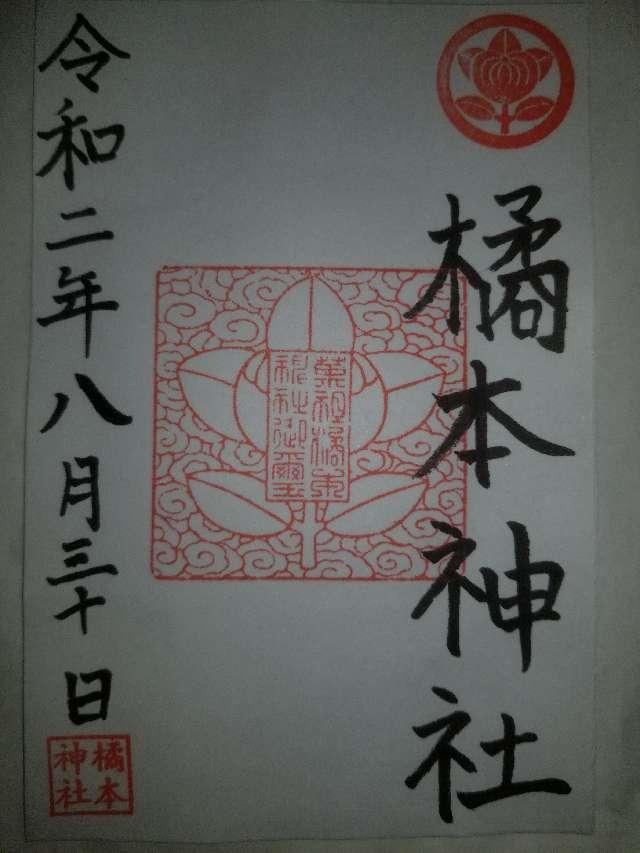 橘本神社
菓祖橘本
神社御璽
令和二年八月三十日
橘本
神社